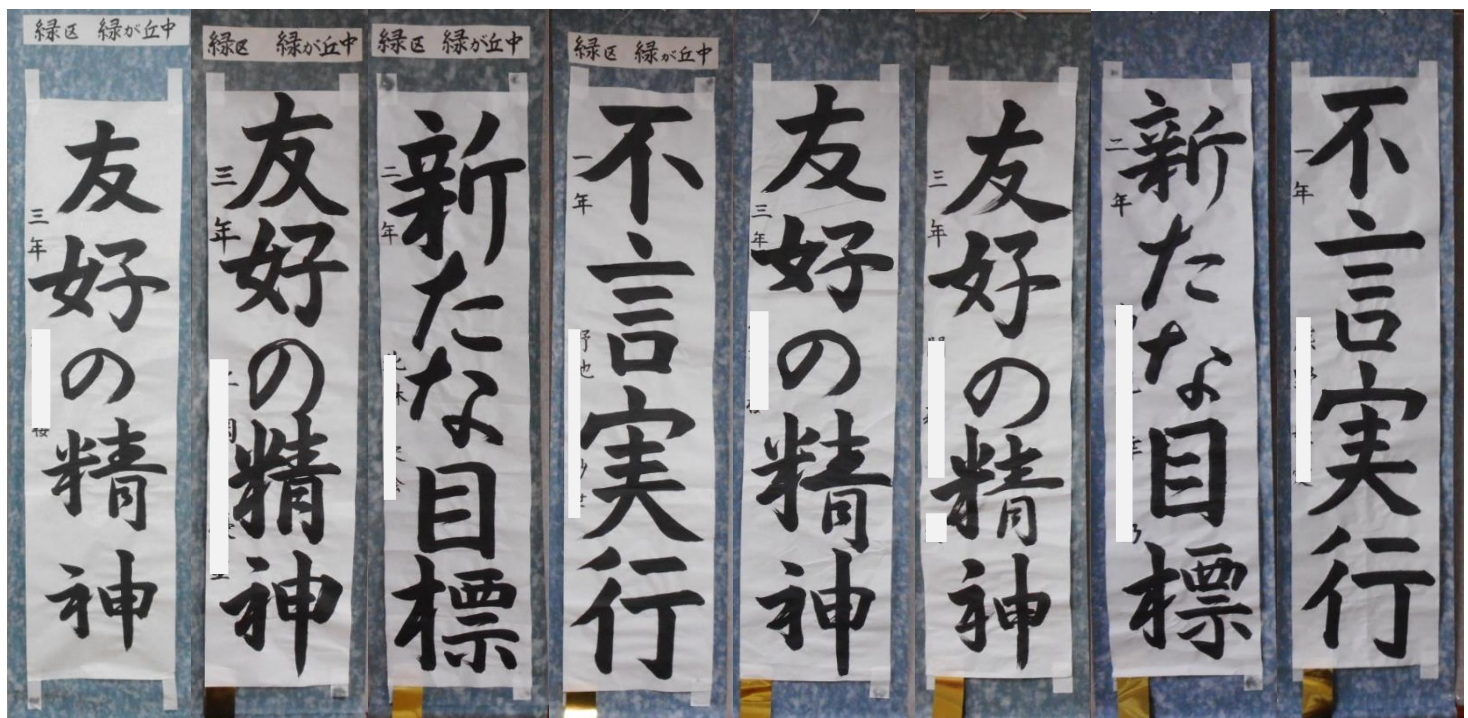 緑区 緑が丘中
友好の精神
三年
緑区 緑が丘中
友好の精神
三年
緑区 緑が丘中
新たな目標
二年
緑区 緑が丘中
不言実行
一年
友好の精神
三年
友好の精神
三年
新たな目標
二年
不言実行
一年